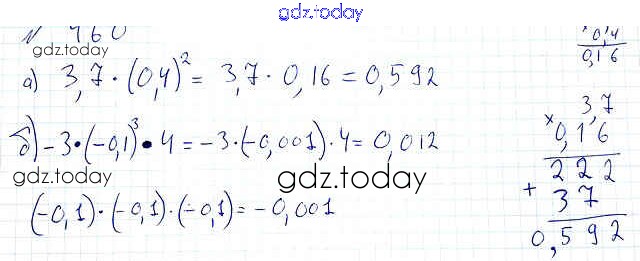 gdz.today
№ 460
gdz.today
а) 3,7 · (0,4)² = 3,7 · 0,16 = 0,592
б) -3 · (-0,1)³ · 4 = -3 · (-0,001) · 4 = 0,012
gdz.today
gdz.today
(-0,1) · (-0,1) · (-0,1) = -0,001
× 0,4
0,16
3,7
× 0,16
222
+ 37
0,592